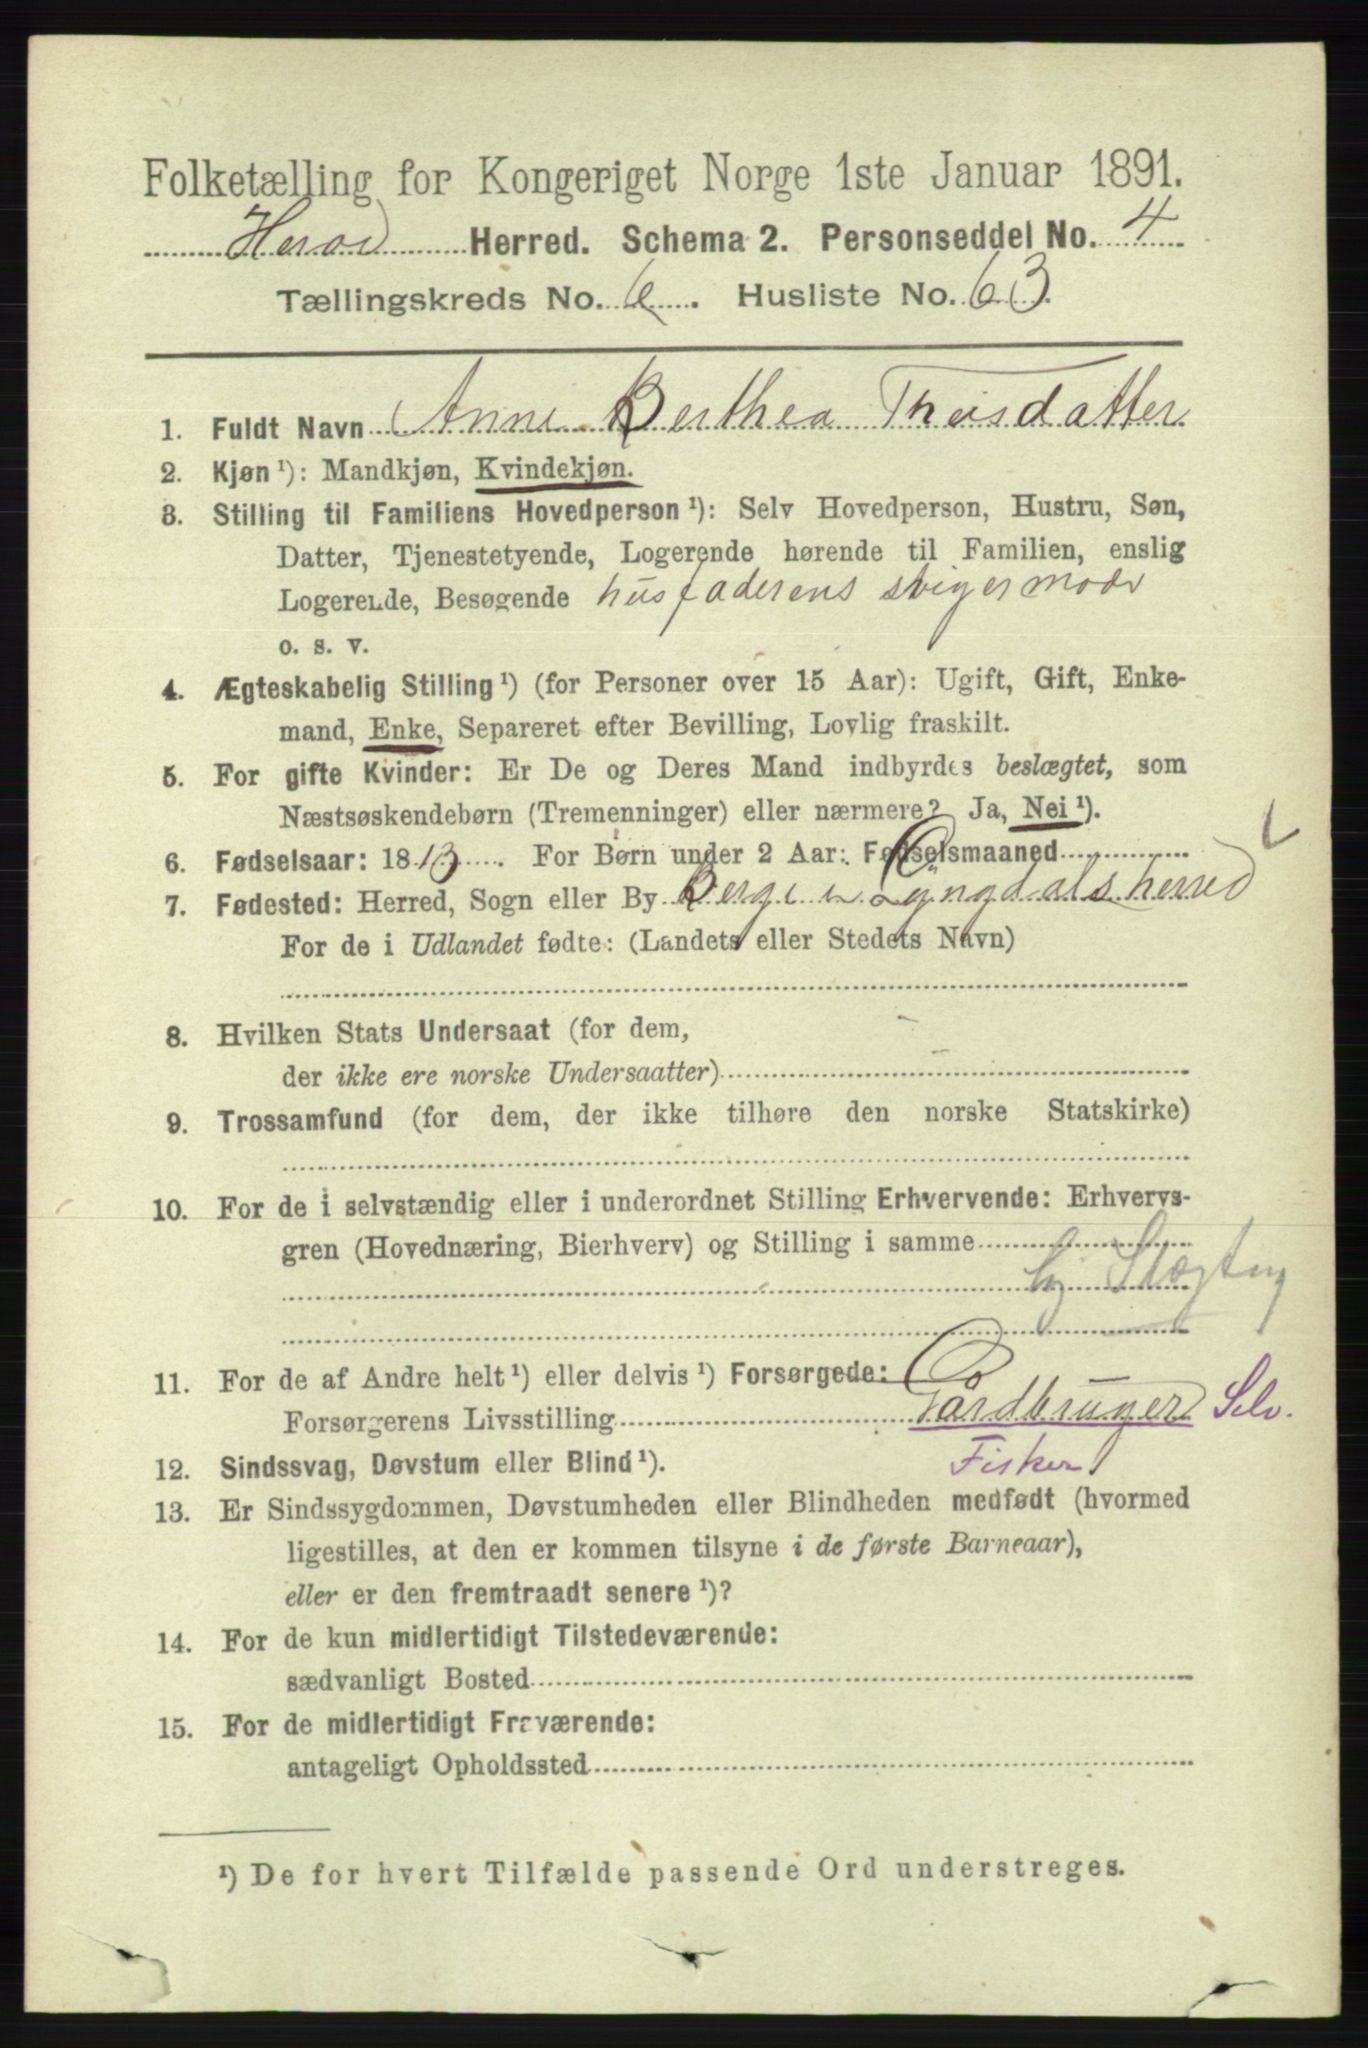 Folketælling for Kongeriget Norge 1ste Januar 1891.
Herad Herred. Schema 2. Personseddel No. 4
Tællingskreds No. 6. Husliste No. 63.
1. Fuldt Navn Anne Berthea Theisdatter
2. Kjøn ¹): Mandkjøn, Kvindekjøn.
3. Stilling til Familiens Hovedperson ¹): Selv Hovedperson, Hustru, Søn,
Datter, Tjenestetyende, Logerende hørende til Familien, enslig
Logerende, Besøgende husfaderens svigermoder
o. s. v.
4. Ægteskabelig Stilling ¹) (for Personer over 15 Aar): Ugift, Gift, Enke-
mand, Enke, Separeret efter Bevilling, Lovlig fraskilt.
5. For gifte Kvinder: Er De og Deres Mand indbyrdes beslægtet, som
Næstsøskendebørn (Tremenninger) eller nærmere? Ja, Nei ¹).
6. Fødselsaar: 1813. For Børn under 2 Aar: Fødselsmaaned
7. Fødested: Herred, Sogn eller By Berge i Lyngdals herred
For de i Udlandet fødte: (Landets eller Stedets Navn)
8. Hvilken Stats Undersaat (for dem,
der ikke ere norske Undersaatter)
9. Trossamfund (for dem, der ikke tilhøre den norske Statskirke)
10. For de i selvstændig eller i underordnet Stilling Erhvervende: Erhvervs-
gren (Hovednæring, Bierhverv) og Stilling i samme
Slægtng
11. For de af Andre helt ¹) eller delvis ¹) Forsørgede:
Forsørgerens Livsstilling Gårdbruger Selv.
12. Sindssvag, Døvstum eller Blind ¹). Fisker
13. Er Sindssygdommen, Døvstumheden eller Blindheden medfødt (hvormed
ligestilles, at den er kommen tilsyne i de første Barneaar),
eller er den fremtraadt senere ¹)?
14. For de kun midlertidigt Tilstedeværende:
sædvanligt Bosted
15. For de midlertidigt Fraværende:
antageligt Opholdssted
¹) De for hvert Tilfælde passende Ord understreges.